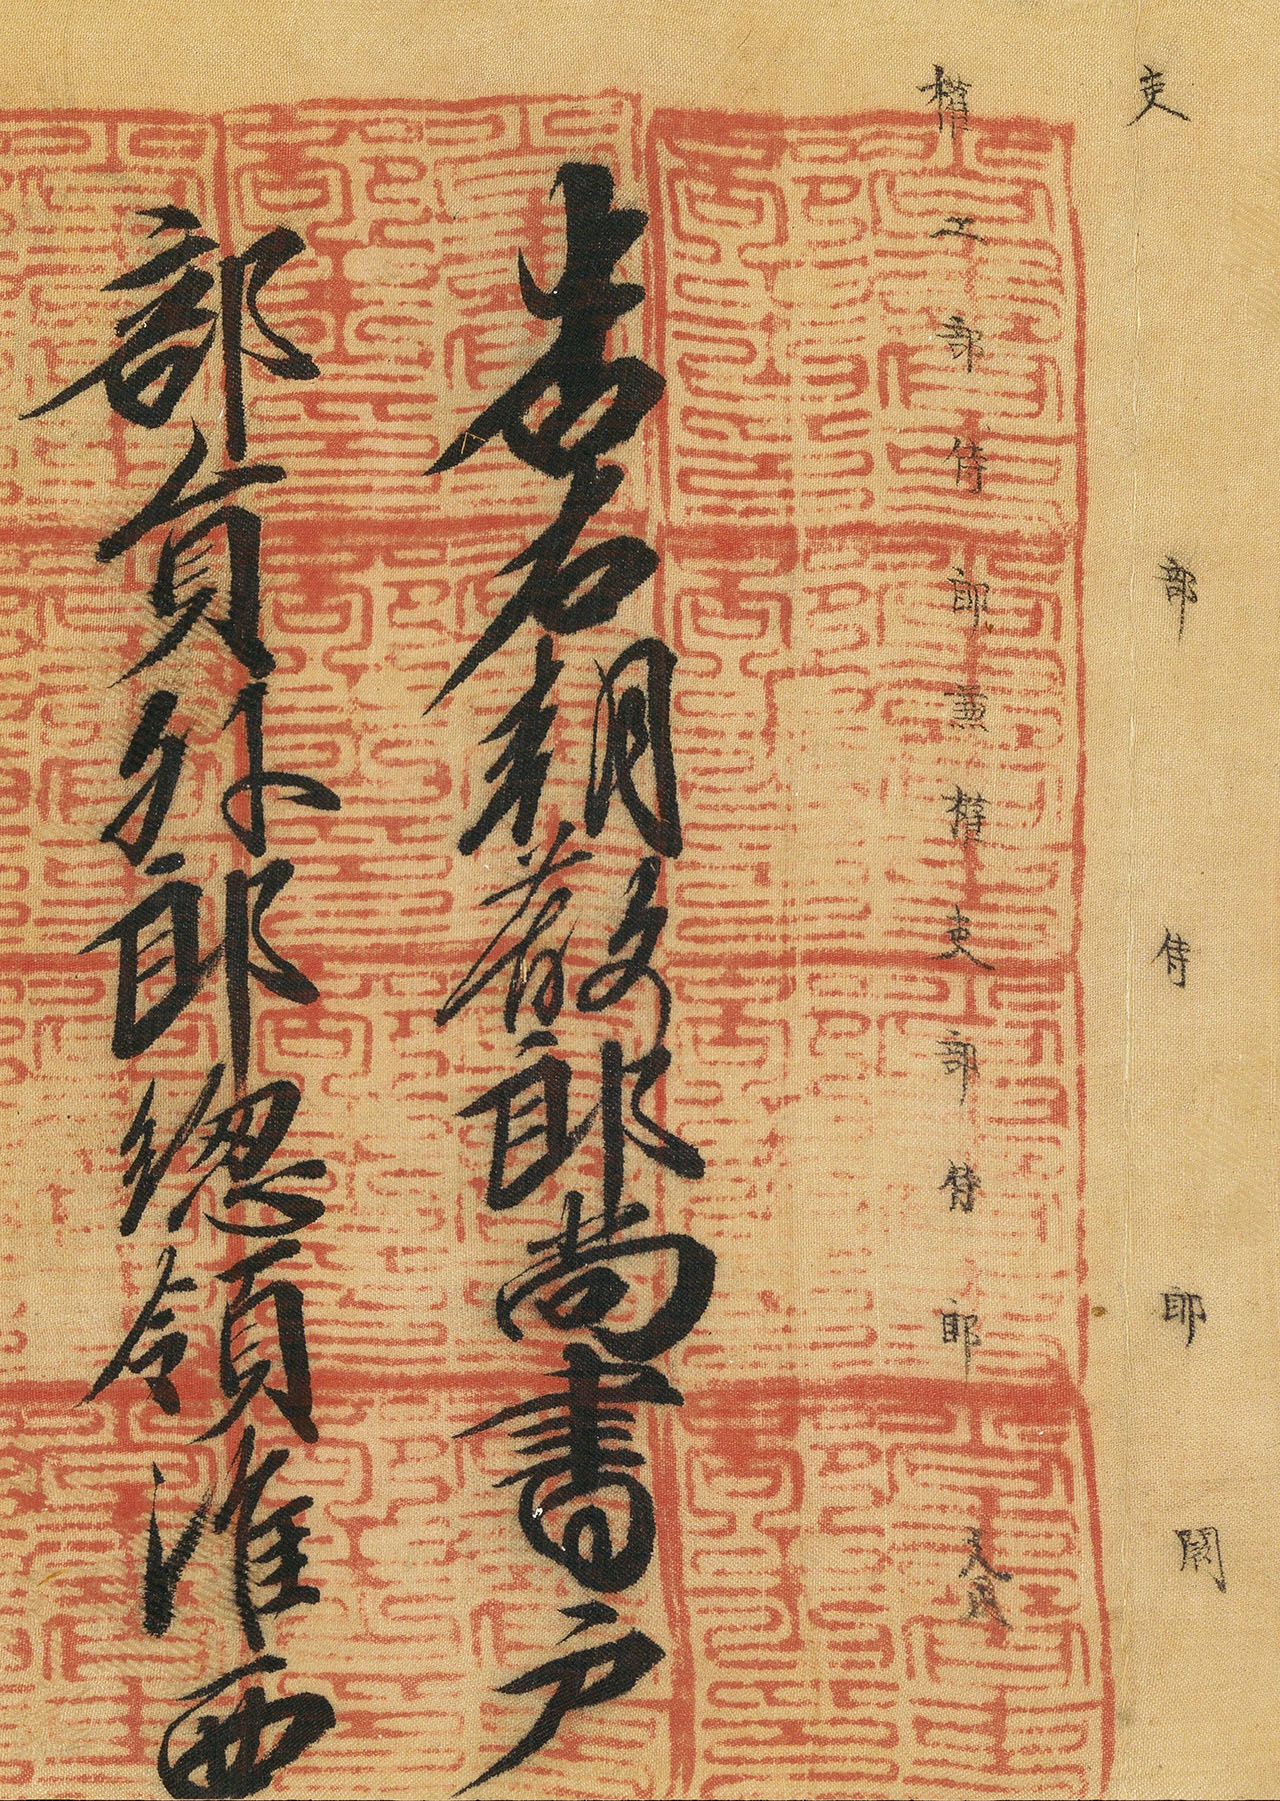 吏部侍郎闕
權工部侍郎兼權吏部侍郎天民
告右朝散郎尚書戶
部員外郎總領淮西